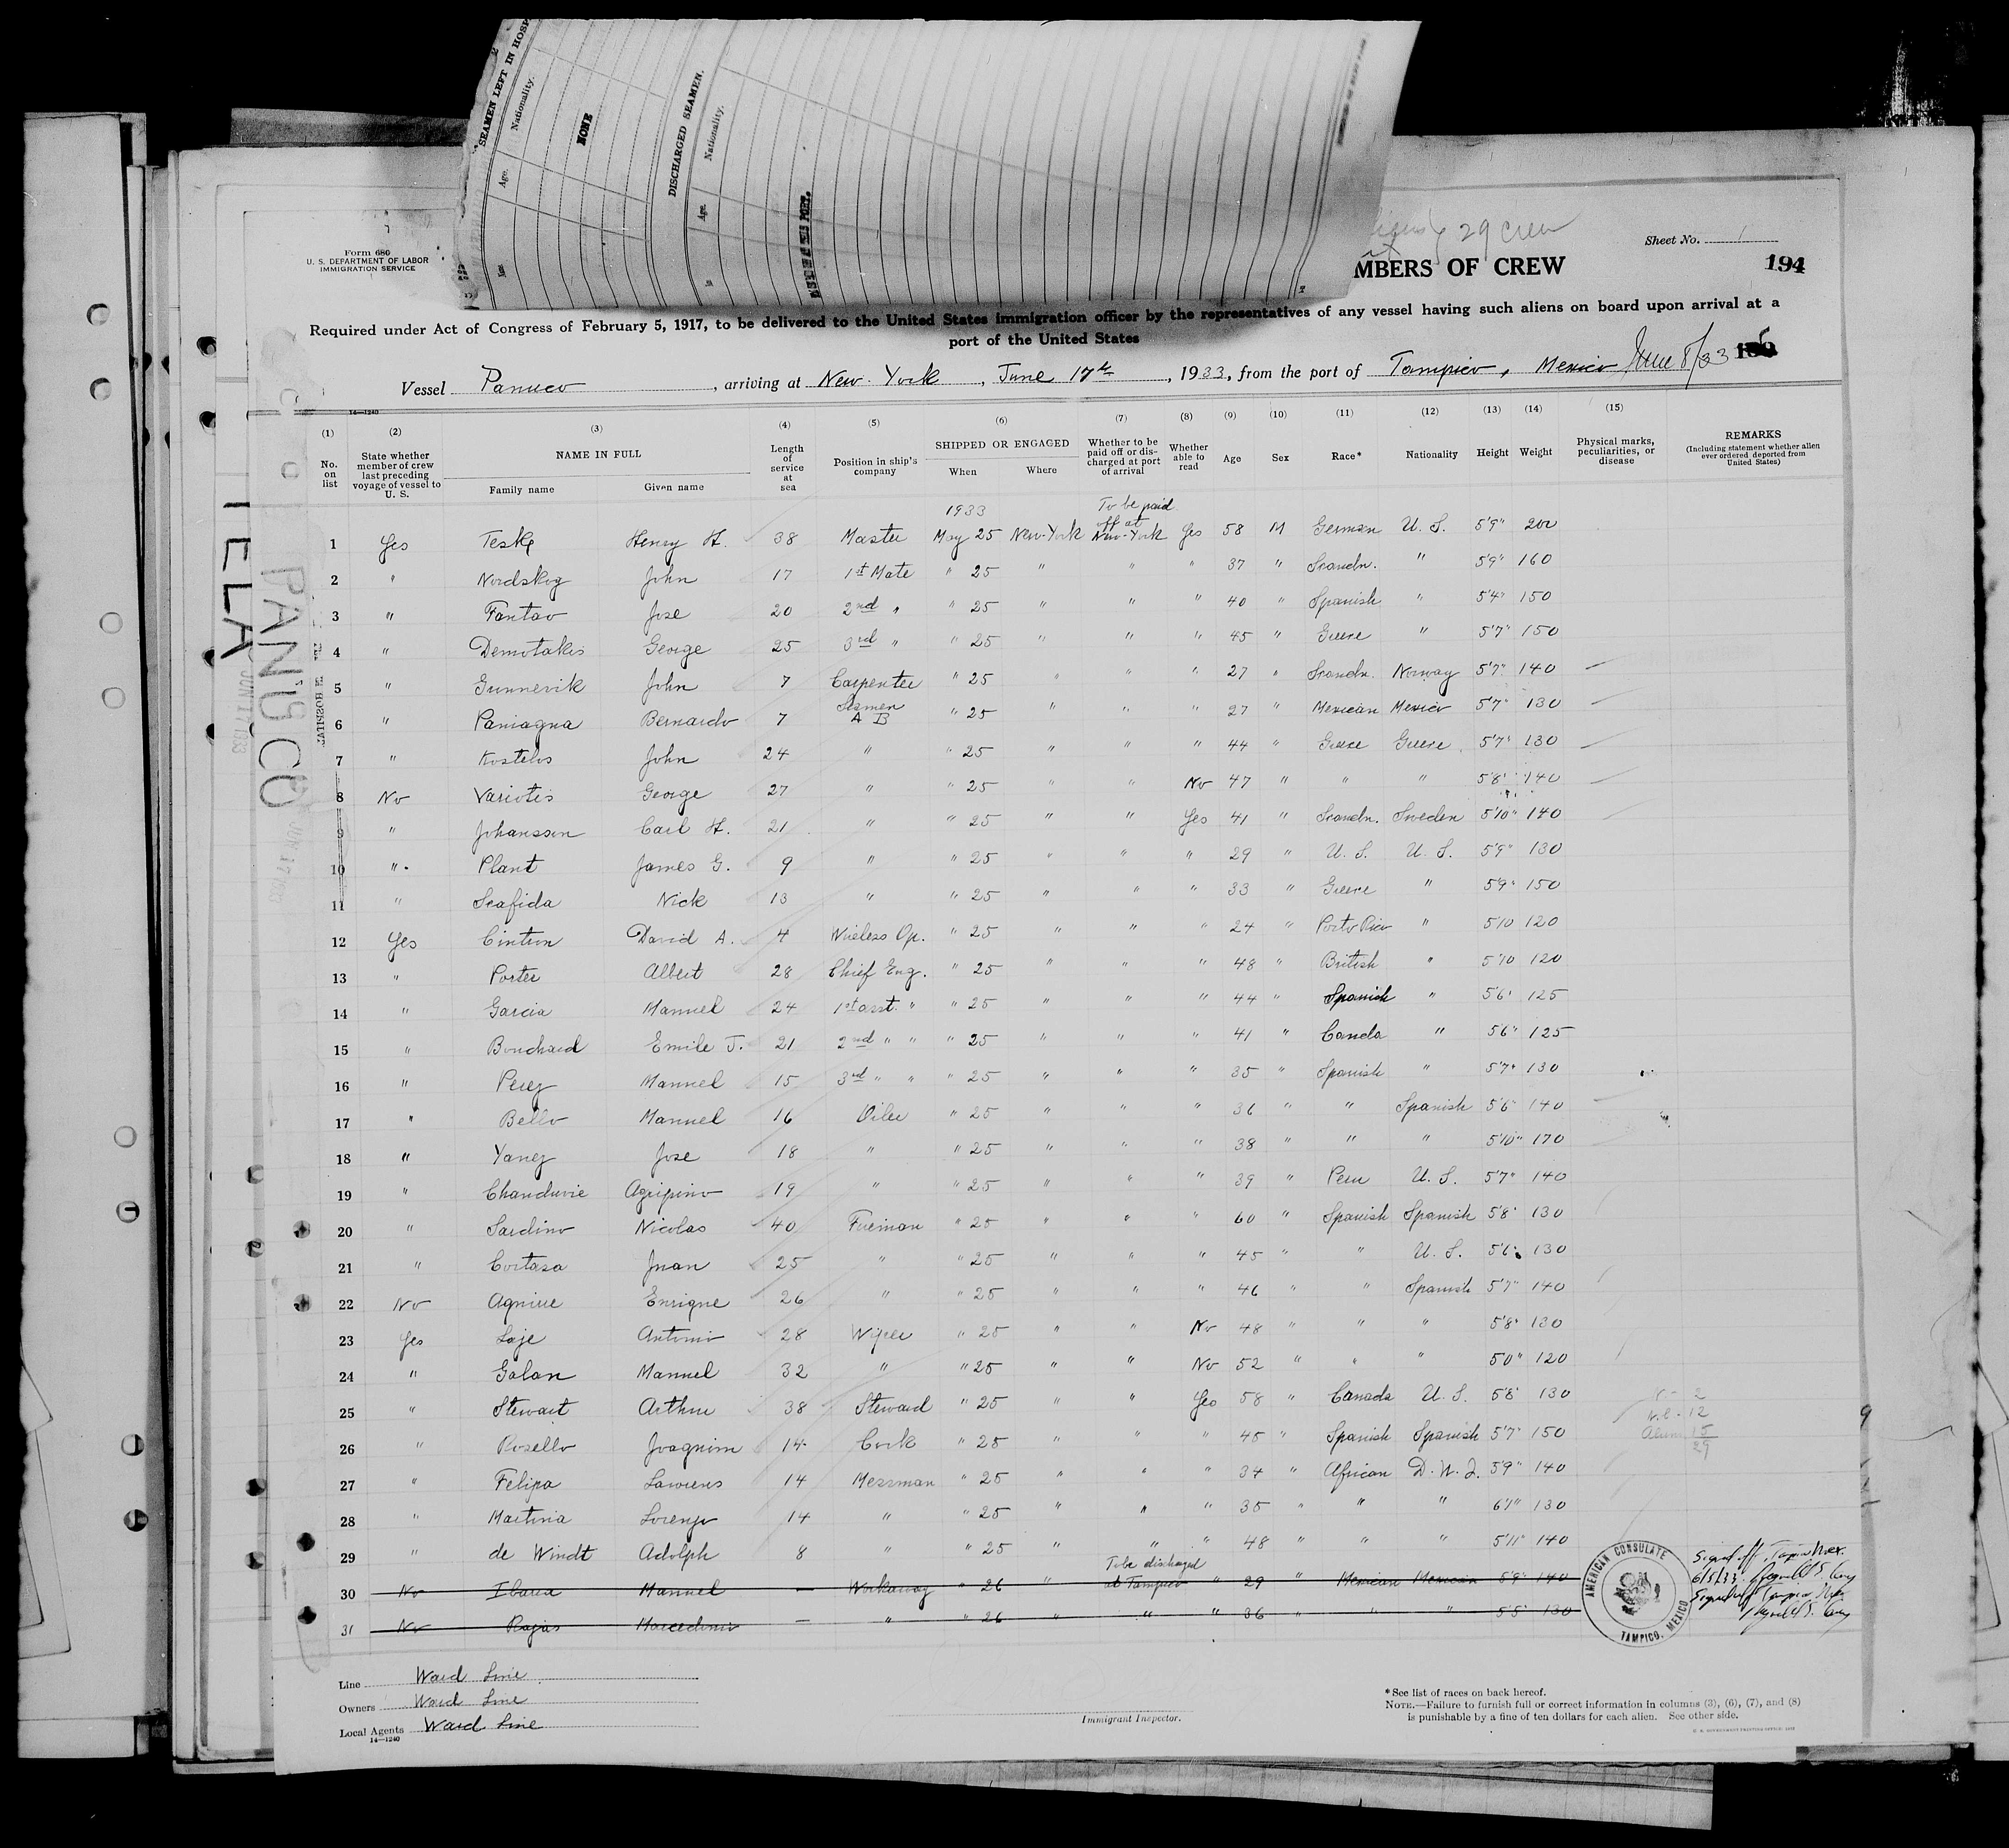 SEAMEN LEFT IN HOSP
Nationality.
Age.
NONE
DISCHARGED SEAMEN.
Nationality.
Age.
29 Crew
Form 680
U. S. DEPARTMENT OF LABOR
IMMIGRATION SERVICE
Sheet No. 1
MBERS OF CREW
194
Required under Act of Congress of February 5, 1917, to be delivered to the United States immigration officer by the representatives of any vessel having such aliens on board upon arrival at a
port of the United States
Vessel Panuco, arriving at New York, June 17th, 1933, from the port of Tampico, Mexico June 8/33
14—1240
(1) (2) (3) (4) (5) (6) (7) (8) (9) (10) (11) (12) (13) (14) (15)
No. on list
State whether member of crew last preceding voyage of vessel to U. S.
NAME IN FULL
Family name Given name
Length of service at sea
Position in ship's company
SHIPPED OR ENGAGED
When Where
Whether to be paid off or discharged at port of arrival
Whether able to read
Age Sex Race* Nationality Height Weight
Physical marks, peculiarities, or disease
REMARKS
(Including statement whether alien ever ordered deported from United States)
1933 To be paid off at
1 Yes Teske Henry H. 38 Master May 25 New-York New-York Yes 58 M German U. S. 5'9" 200
2 " Nordskog John 17 1st Mate " 25 " " " 37 " Scandn. " 5'9" 160
3 " Fantao Jose 20 2nd " " 25 " " " 40 " Spanish " 5'4" 150
4 " Demotakis George 25 3rd " " 25 " " " 45 " Greece " 5'7" 150
5 " Gunnevik John 7 Carpenter " 25 " " " 27 " Scandn. Norway 5'7" 140
6 " Paniagua Bernardo 7 Seamen A B " 25 " " " 27 " Mexican Mexico 5'7" 130
7 " Kostelos John 24 " " 25 " " " 44 " Greece Greece 5'7" 130
8 No Variotis George 27 " " 25 " " No 47 " " " 5'8" 140
9 " Johansson Carl H. 21 " " 25 " " Yes 41 " Scandn. Sweden 5'10" 140
10 " Plant James G. 9 " " 25 " " " 29 " U. S. U. S. 5'9" 130
11 " Scafida Nick 13 " " 25 " " " 33 " Greece " 5'9" 150
12 Yes Cintron David A. 4 Wireless Op. " 25 " " " 24 " Porto Rico " 5'10 120
13 " Porter Albert 28 Chief Eng. " 25 " " " 48 " British " 5'10 120
14 " Garcia Manuel 24 1st asst. " " 25 " " " 44 " Spanish " 5'6" 125
15 " Bouchard Emile J. 21 2nd " " " 25 " " " 41 " Canda " 5'6" 125
16 " Perez Manuel 15 3rd " " " 25 " " " 35 " Spanish " 5'7" 130
17 " Bello Manuel 16 Oiler " 25 " " " 36 " " Spanish 5'6" 140
18 " Yanez Jose 18 " " 25 " " " 38 " " " 5'10" 170
19 " Chanduvie Agripino 19 " " 25 " " " 39 " Peru U. S. 5'7" 140
20 " Sardino Nicolas 40 Fireman " 25 " " " 60 " Spanish Spanish 5'8" 130
21 " Cortasa Juan 25 " " 25 " " " 45 " " U. S. 5'6" 130
22 No Aguirre Enrique 26 " " 25 " " " 46 " " Spanish 5'7" 140
23 Yes Laje Antonio 28 Wiper " 25 " " No 48 " " " 5'8" 130
24 " Galan Manuel 32 " " 25 " " No 52 " " " 5'0" 120
25 " Stewart Arthur 38 Steward " 25 " " Yes 58 " Canada U. S. 5'8" 130
26 " Rosello Joaquim 14 Cook " 25 " " " 45 " Spanish Spanish 5'7" 150
27 " Felipa Lawrens 14 Messman " 25 " " " 34 " African D. W. I. 5'9" 140
28 " Martina Lorenzo 14 " " 25 " " " 35 " " " 6'1" 130
29 " de Windt Adolph 8 " " 25 " " " 48 " " " 5'11" 140
To be discharged
30 No Ibarra Manuel — Workaway " 26 " at Tampico " 29 " Mexican Mexican 5'9" 140
31 No Rojas Macedonio — " " 26 " " " 36 " " " 5'5" 130
12
15
29
AMERICAN CONSULATE
TAMPICO, MEXICO
Signed off Tampico Mex.
6/5/33
PANUCO
TELA
JUN 17 1933
HOSPITAL
Line Ward Line
Owners Ward Line
Local Agents Ward Line
14—1240
Immigrant Inspector.
* See list of races on back hereof.
NOTE.—Failure to furnish full or correct information in columns (3), (6), (7), and (8)
is punishable by a fine of ten dollars for each alien. See other side.